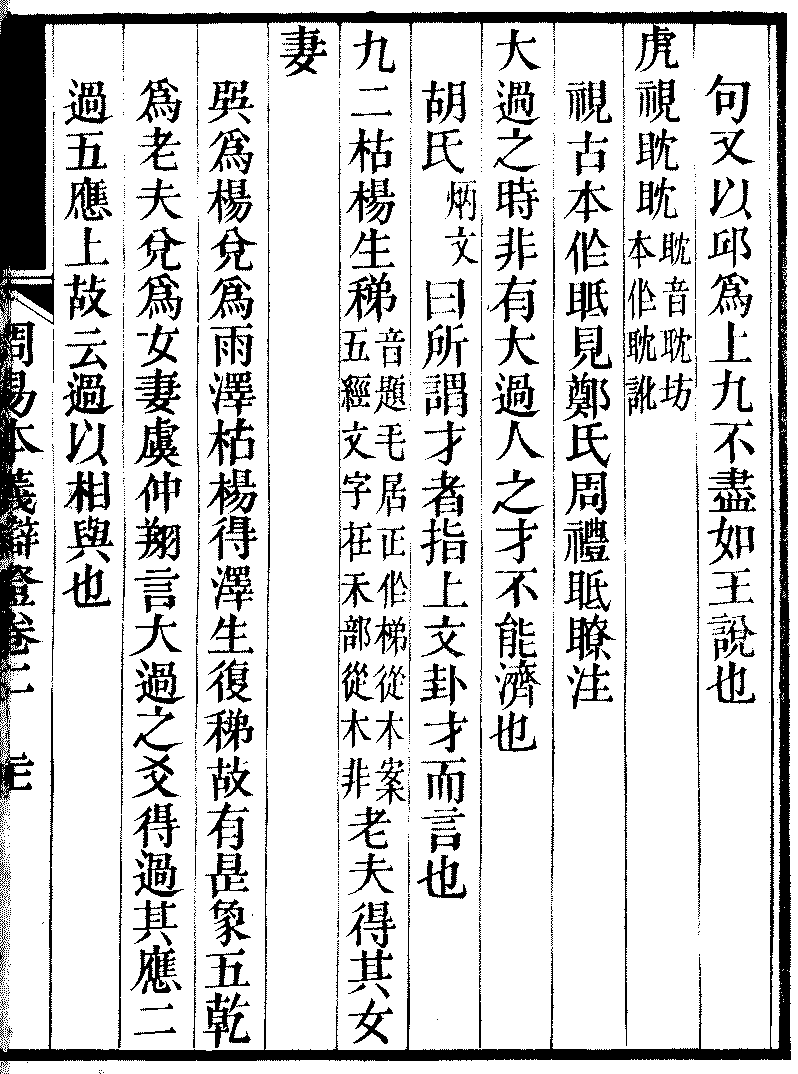 句又以邱爲上九不盡如王說也
虎視眈眈眈音耽坊本作耽訛
視古本作眂見鄭氏周禮眂瞭注
大過之時非有大過人之才不能濟也
胡氏炳文曰所謂才者指上文卦才而言也
九二枯楊生稊音題毛居正作梯從木案五經文字在禾部從木非老夫得其女
妻
巽爲楊兌爲雨澤枯楊得澤生復稊故有是象五乾
爲老夫兌爲女妻虞仲翔言大過之爻得過其應二
過五應上故云過以相與也
周易本義辯證卷二